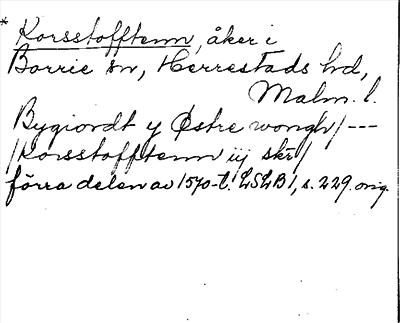 * Korsstofftenn, åker i
Borrie sn, Herrestads hd,
Malm. l.
Bygiordt y Østre wongh/---
/Korsstofftenn iij skr/
förra delen av 1570-t. LSLB 1, s. 229 orig.